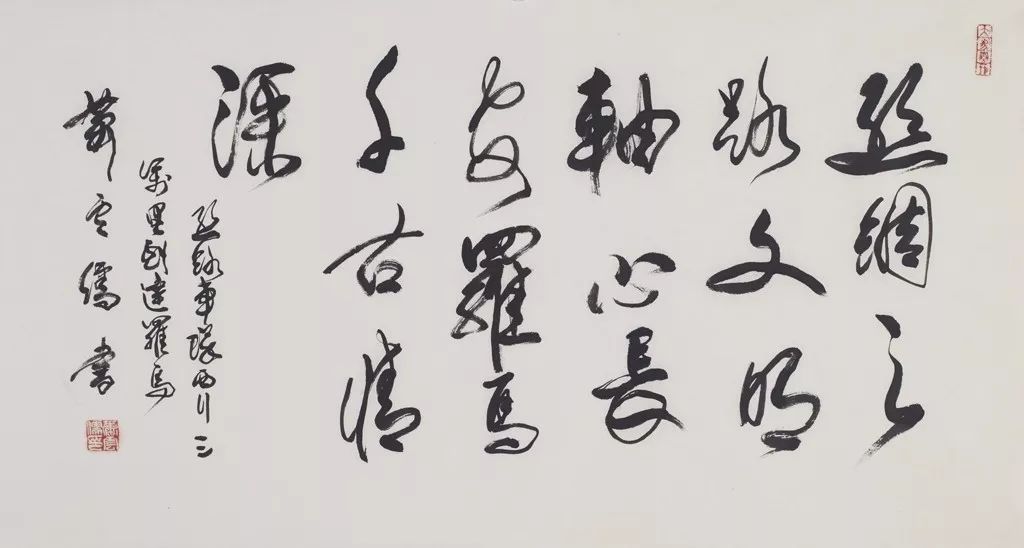 絲綢之
路文明
軸心長
安羅馬
千古情
深
絲路車隊西行三
萬里到達羅馬
蕭雲儒書